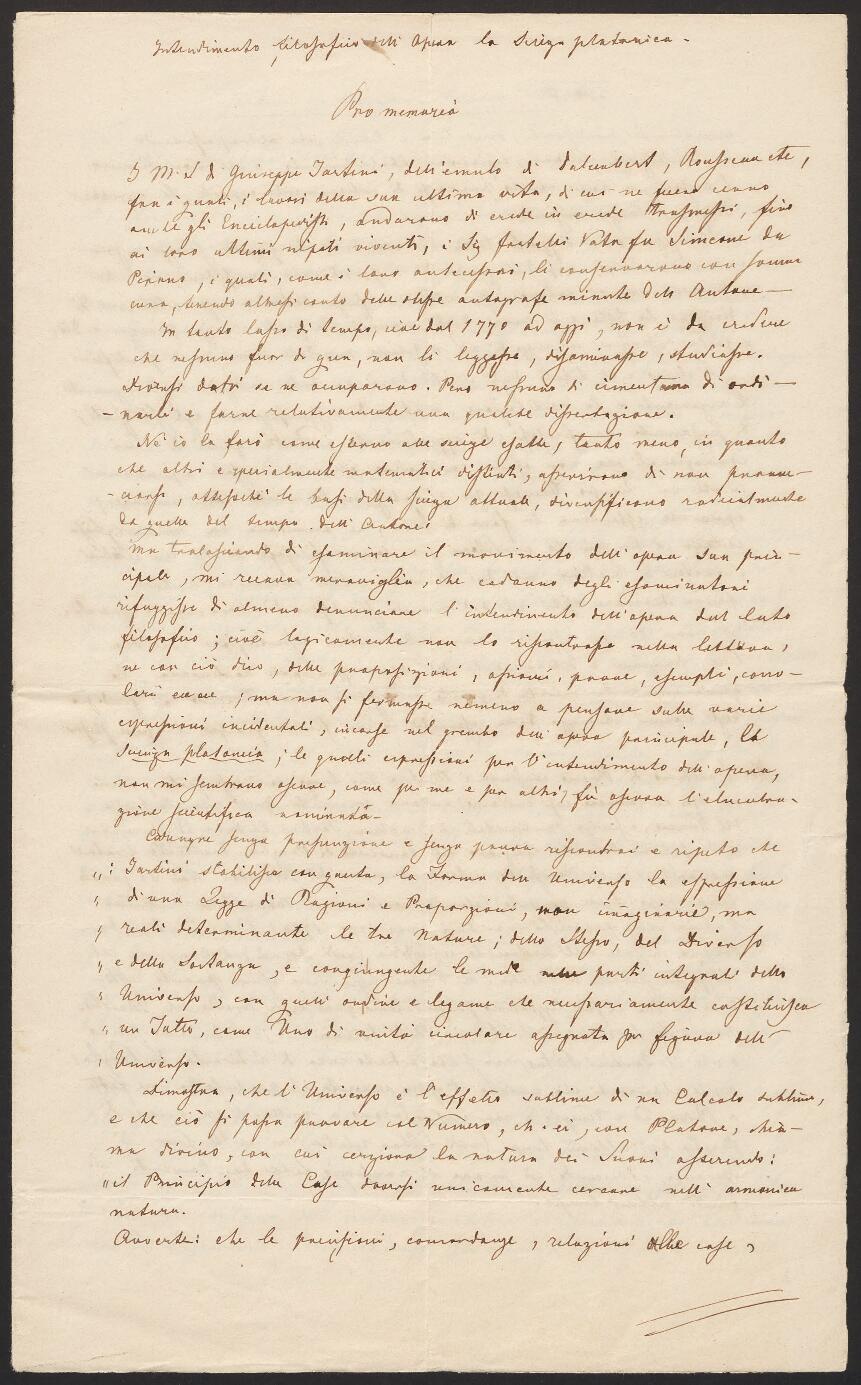 Intendimento filosofico dell' Opera la Scienza platonica -
Pro memoria
I M. S. di Giuseppe Tartini, dell'emulo di Dalembert, Rousseau etc,
fra i quali, i lavori della sua ultima vita, di cui ne fecero cenno
anche gli Enciclopedisti, andarono di erede in erede trasmessi, fino
ai loro ultimi nipoti viventi, i Sig fratelli Vatta fu Simeone da
Pirano, i quali, come i loro antecessori, li conservarono con somma
cura, tenendo altresì conto delle stesse autografe minute dell' Autore —
In tanto lasso di tempo, cioè dal 1770 ad oggi, non è da credere
che nessuno fuor di qua, non li leggesse, disaminasse, studiasse.
Diversi dotti se ne occuparono. Però nessuno si cimentava di ordi —
- narli e farne relativamente una qualche dissertazione.
Nè io la farò come esterno alle scienze esatte, tanto meno, in quanto
che altri e specialmente matematici distinti, asserirono di non pronun —
- ciarsi, attesochè le basi della scienza attuale, diversificano radicalmente
da quelle del tempo dell' Autore.
Ma tralasciando di esaminare il movimento dell' opera sua prin —
cipale, mi recava meraviglia, che cadauno degli esaminatori
rifuggisse di almeno denunciare l'intendimento dell'opera dal lato
filosofico; cioè logicamente non lo riscontrasse nella lettura,
ne con ciò dico, delle proposizioni, assiomi, prove, esempli, corro —
larii ecc ecc; ma non si fermasse nemeno a pensare sulle varie
espressioni incidentali, incorse nel grembo dell' opera principale, la
scienza platonica; le quali espressioni per l'intendimento dell' opera,
non mi sembrano oscure, come per me e per altri, fù oscura l'elucubra-
zione scientifica nominata -
Cadunque senza presunzione e senza paura riscontrai e ripeto che
„ : Tartini stabilisce con questa, la Forma dell' Universo la espressione
„ di una Legge di Ragioni e Proporzioni, non imaginarie, ma
„ reali determinante le tre Nature; dello Stesso, del Diverso
„ e della Sostanza, e congiungente le mille parti integrali dello
„ Universo, con quell' ordine e legame che necessariamente costituisca
„ un Tutto, come Uno di unità circolare assegnata per figura dell'
„ Universo.
Dimostra, che l' Universo è l'effetto sublime di un Calcolo sublime,
e che ciò si possa provare col Numero, ch' ei, con Platone, chia —
ma divino, con cui cerziona la natura dei Suoni asserendo:
„ il Principio delle Cose doversi unicamente cercare nell' armonica
natura.
Avverte: che le precisioni, concordanze, relazioni delle cose,